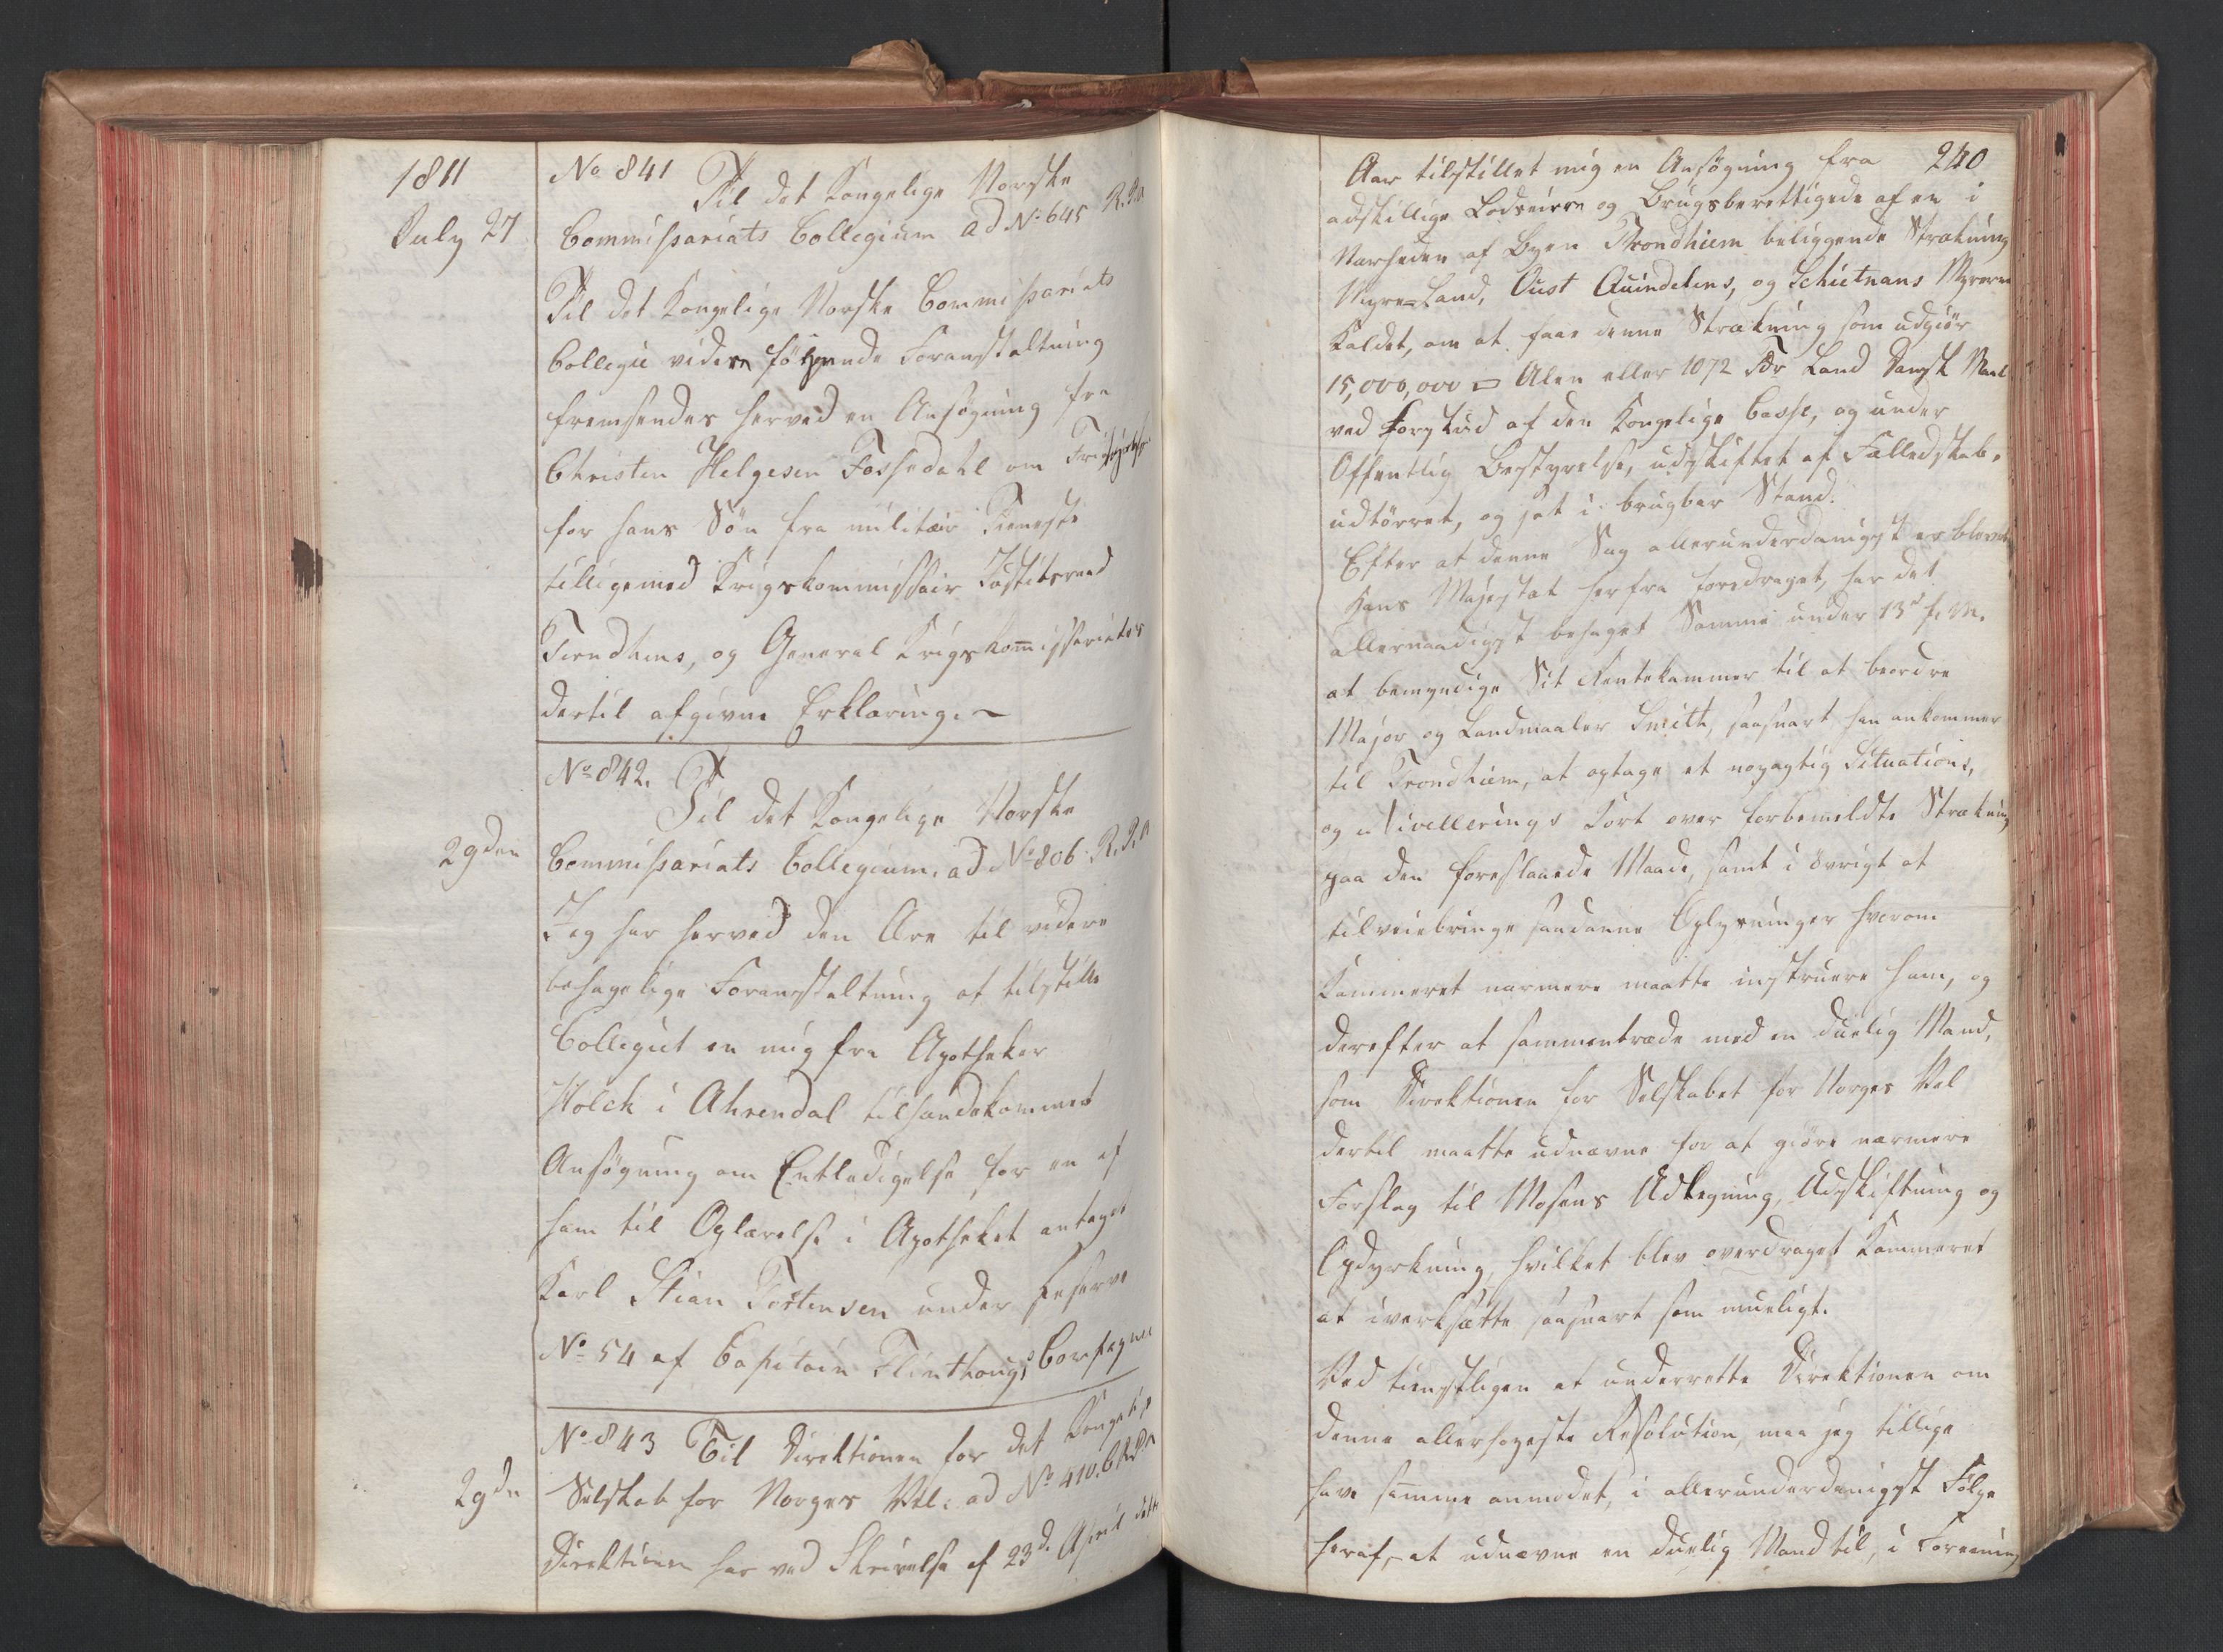 1811
July 27
No 841
Til det Kongelige Norske
Commissariats Collegium ad No 645 R. P. A
Til det Kongelige Norske Commissariats
Collegii videre følgende Foranstaltning
fremsendes herved en Ansøgning fra
Christen Helgesen Fossedahl om
for hans Søn fra militair Tieneste
tilligemed Krigskommissair Justitsraad
og General Krigskommissariatets
dertil afgivne Erklæring.
No 842.
Til det Kongelige Norske
29den
Commissariats Collegium. ad No 806. R. P. A
Jeg har herved den Ære til videre
behagelige Foranstaltning at tilstille
Collegiet en mig fra Apotheker
Holck i Ahrendal tilhændekommet
Ansøgning om Entledigelse for en af
ham til Oplærelse i Apotheket antagen
Karl Stian Tostensen under Reserve
No 54 af Capitain Flinthougs Compagnie
No 843 Til Direktionen for det Kongelige
29de
Selskab for Norges Vel. ad No 410. C. R. P. A
Direktionen har ved Skrivelse af 23d. April dette
240
Aar tilstillet mig en Ansøgning fra
adskillige Lodseiere og Brugsberettigede af en i
Nærheden af Byen Trondhiem beliggende Strækning
Myre-Land, Oust Quindelens, og Schietnans Myrerne
kaldet, om at faae denne Strækning som udgiør
15,000,000 □ Alen eller 1072 Tdr Land Dansk Maal
ved Forskud af den Kongelige Casse, og under
Offentlig Bestyrelse, udskiftet af Fælledskab,
udtørret, og sat i brugbar Stand.
Efter at denne Sag allerunderdanigst er blevet
Hans Majestæt herfra foredraget, har det
allernaadigst behaget Samme under 13d f. M.
at bemyndige Sit Rentekammer til at beordre
Major og Landmaaler Smith, saasnart han ankommer
til Trondhiem, at optage et nøyagtig Situations,
og Nivellerings Kort over forbemeldte Strækning
paa den foreslaaede Maade, samt i øvrigt at
tilveiebringe saadanne Oplysninger hvorom
Kammeret nærmere maatte instruere ham, og
derefter at sammentræde med en duelig Mand,
som Direktionen for Selskabet for Norges Vel
dertil maatte udnævne for at giøre nærmere
Forslag til Mosens Udtegning, Udskiftning og
Opdyrkning, hvilket blev overdraget Kammeret
at iverksætte saasnart som mueligt.
Ved tienstligen at underrette Direktionen om
denne allerhøyeste Resolution, maa jeg tillige
have samme anmodet, i allerunderdanigst Følge
heraf, at udnævne en duelig Mand til, i Forening